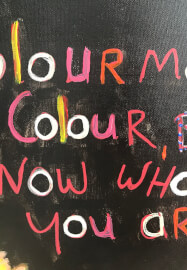 olour m
Colour,
now who
you ar